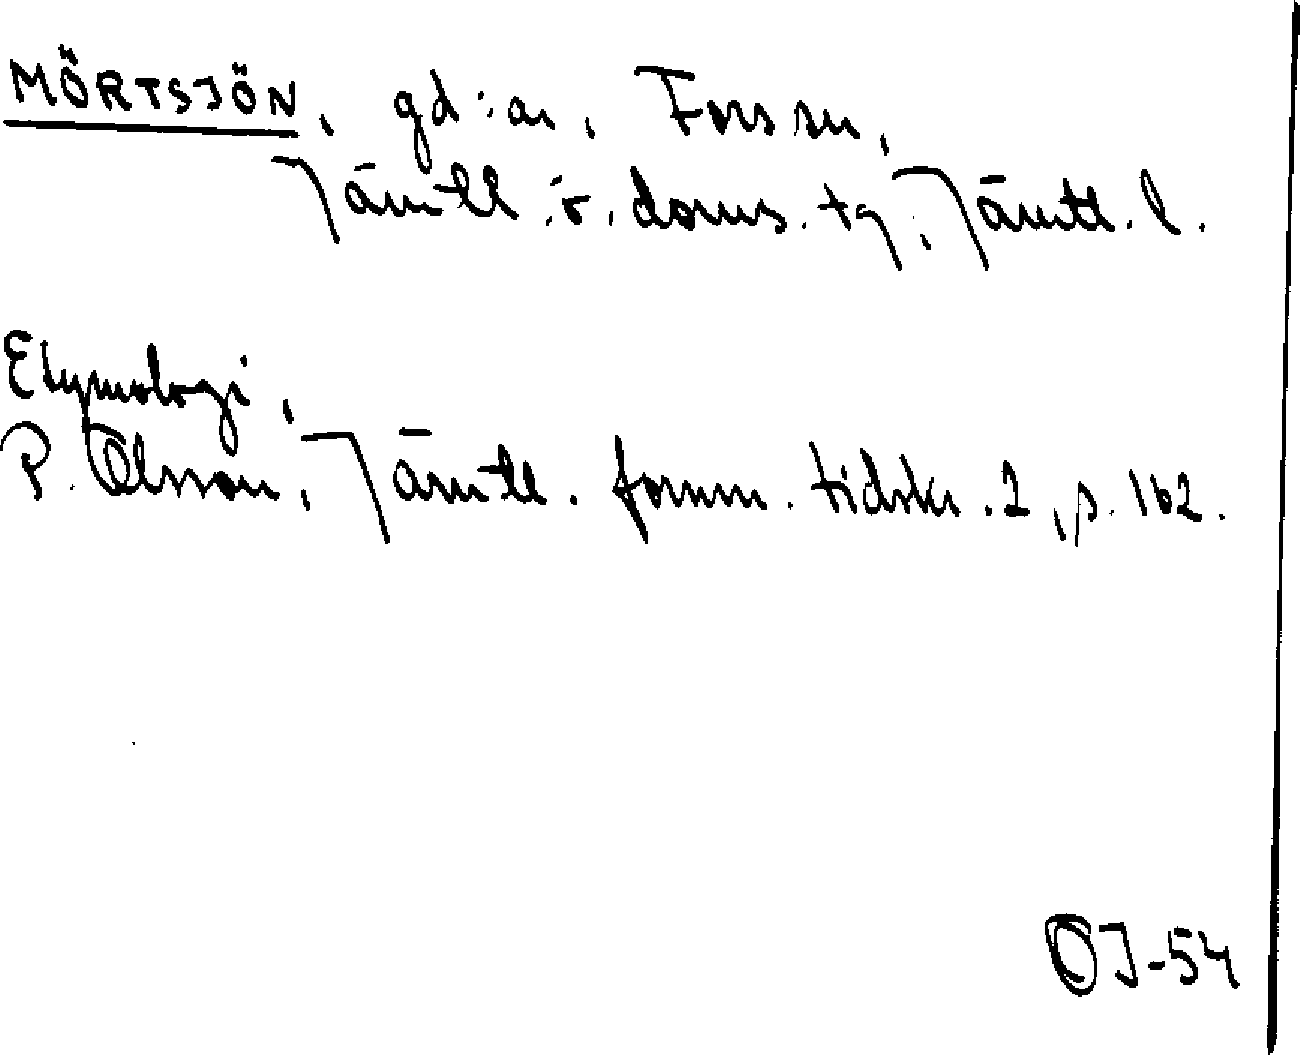 MÖRTSJÖN, gd:ar, Fors sn,
Jämtl. ö. doms. tg, Jämtl. l.
Etymologi,
P. Olsson, Jämtl. fornm. tidskr. 2, s. 162.
OJ-54